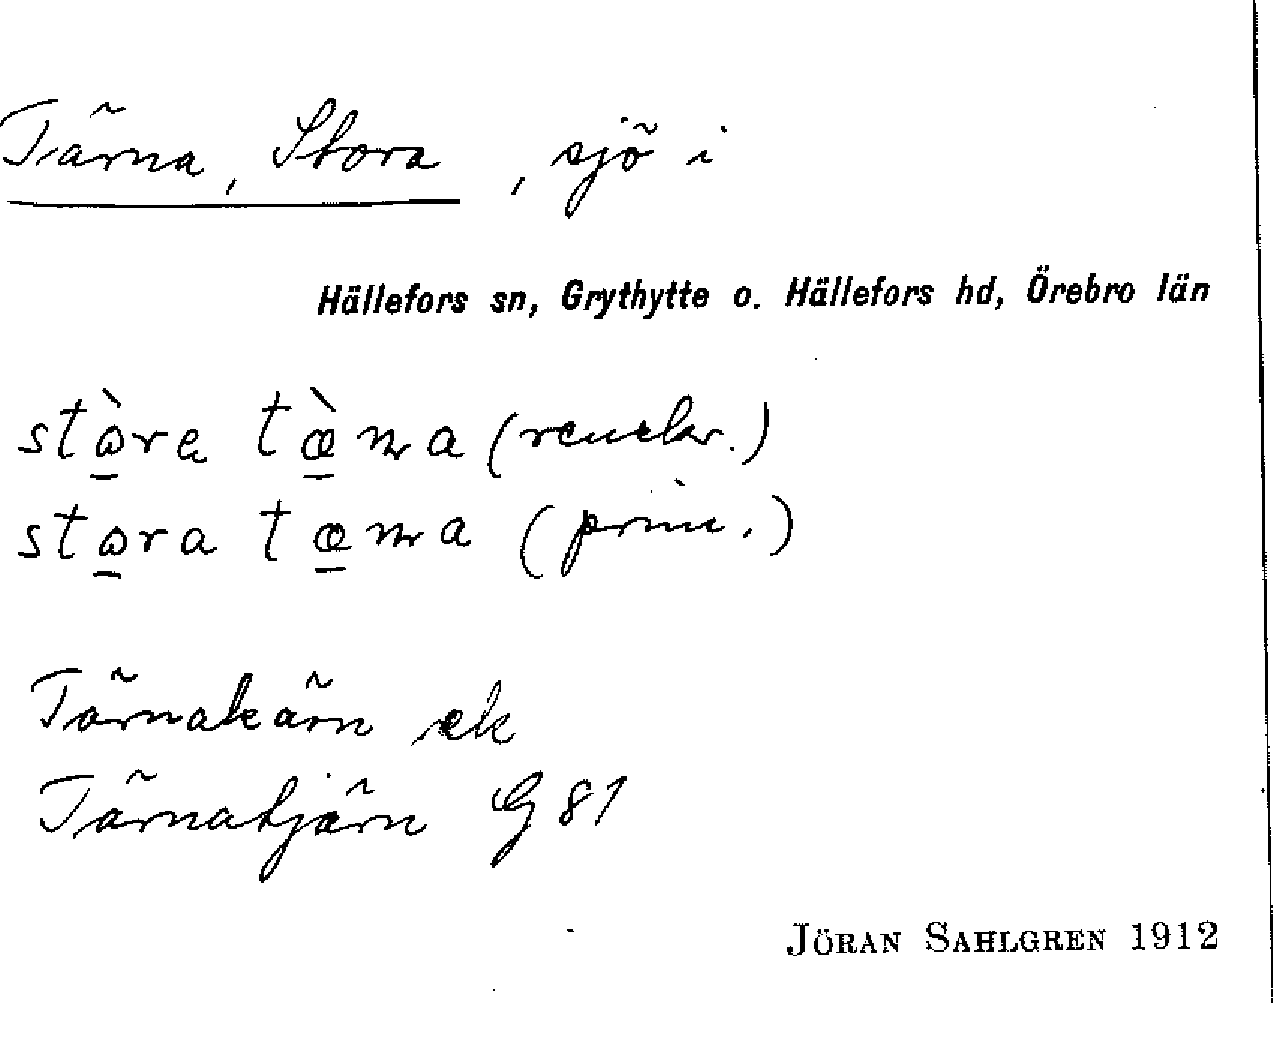 Tärna, Stora, sjö i
Hällefors sn, Grythytte o. Hällefors hd, Örebro län
stòra tæ̀na (renskr.)
stora tæna (prim.)
Tärnakärn ek
Tärnatjärn G 81
JÖRAN SAHLGREN 1912